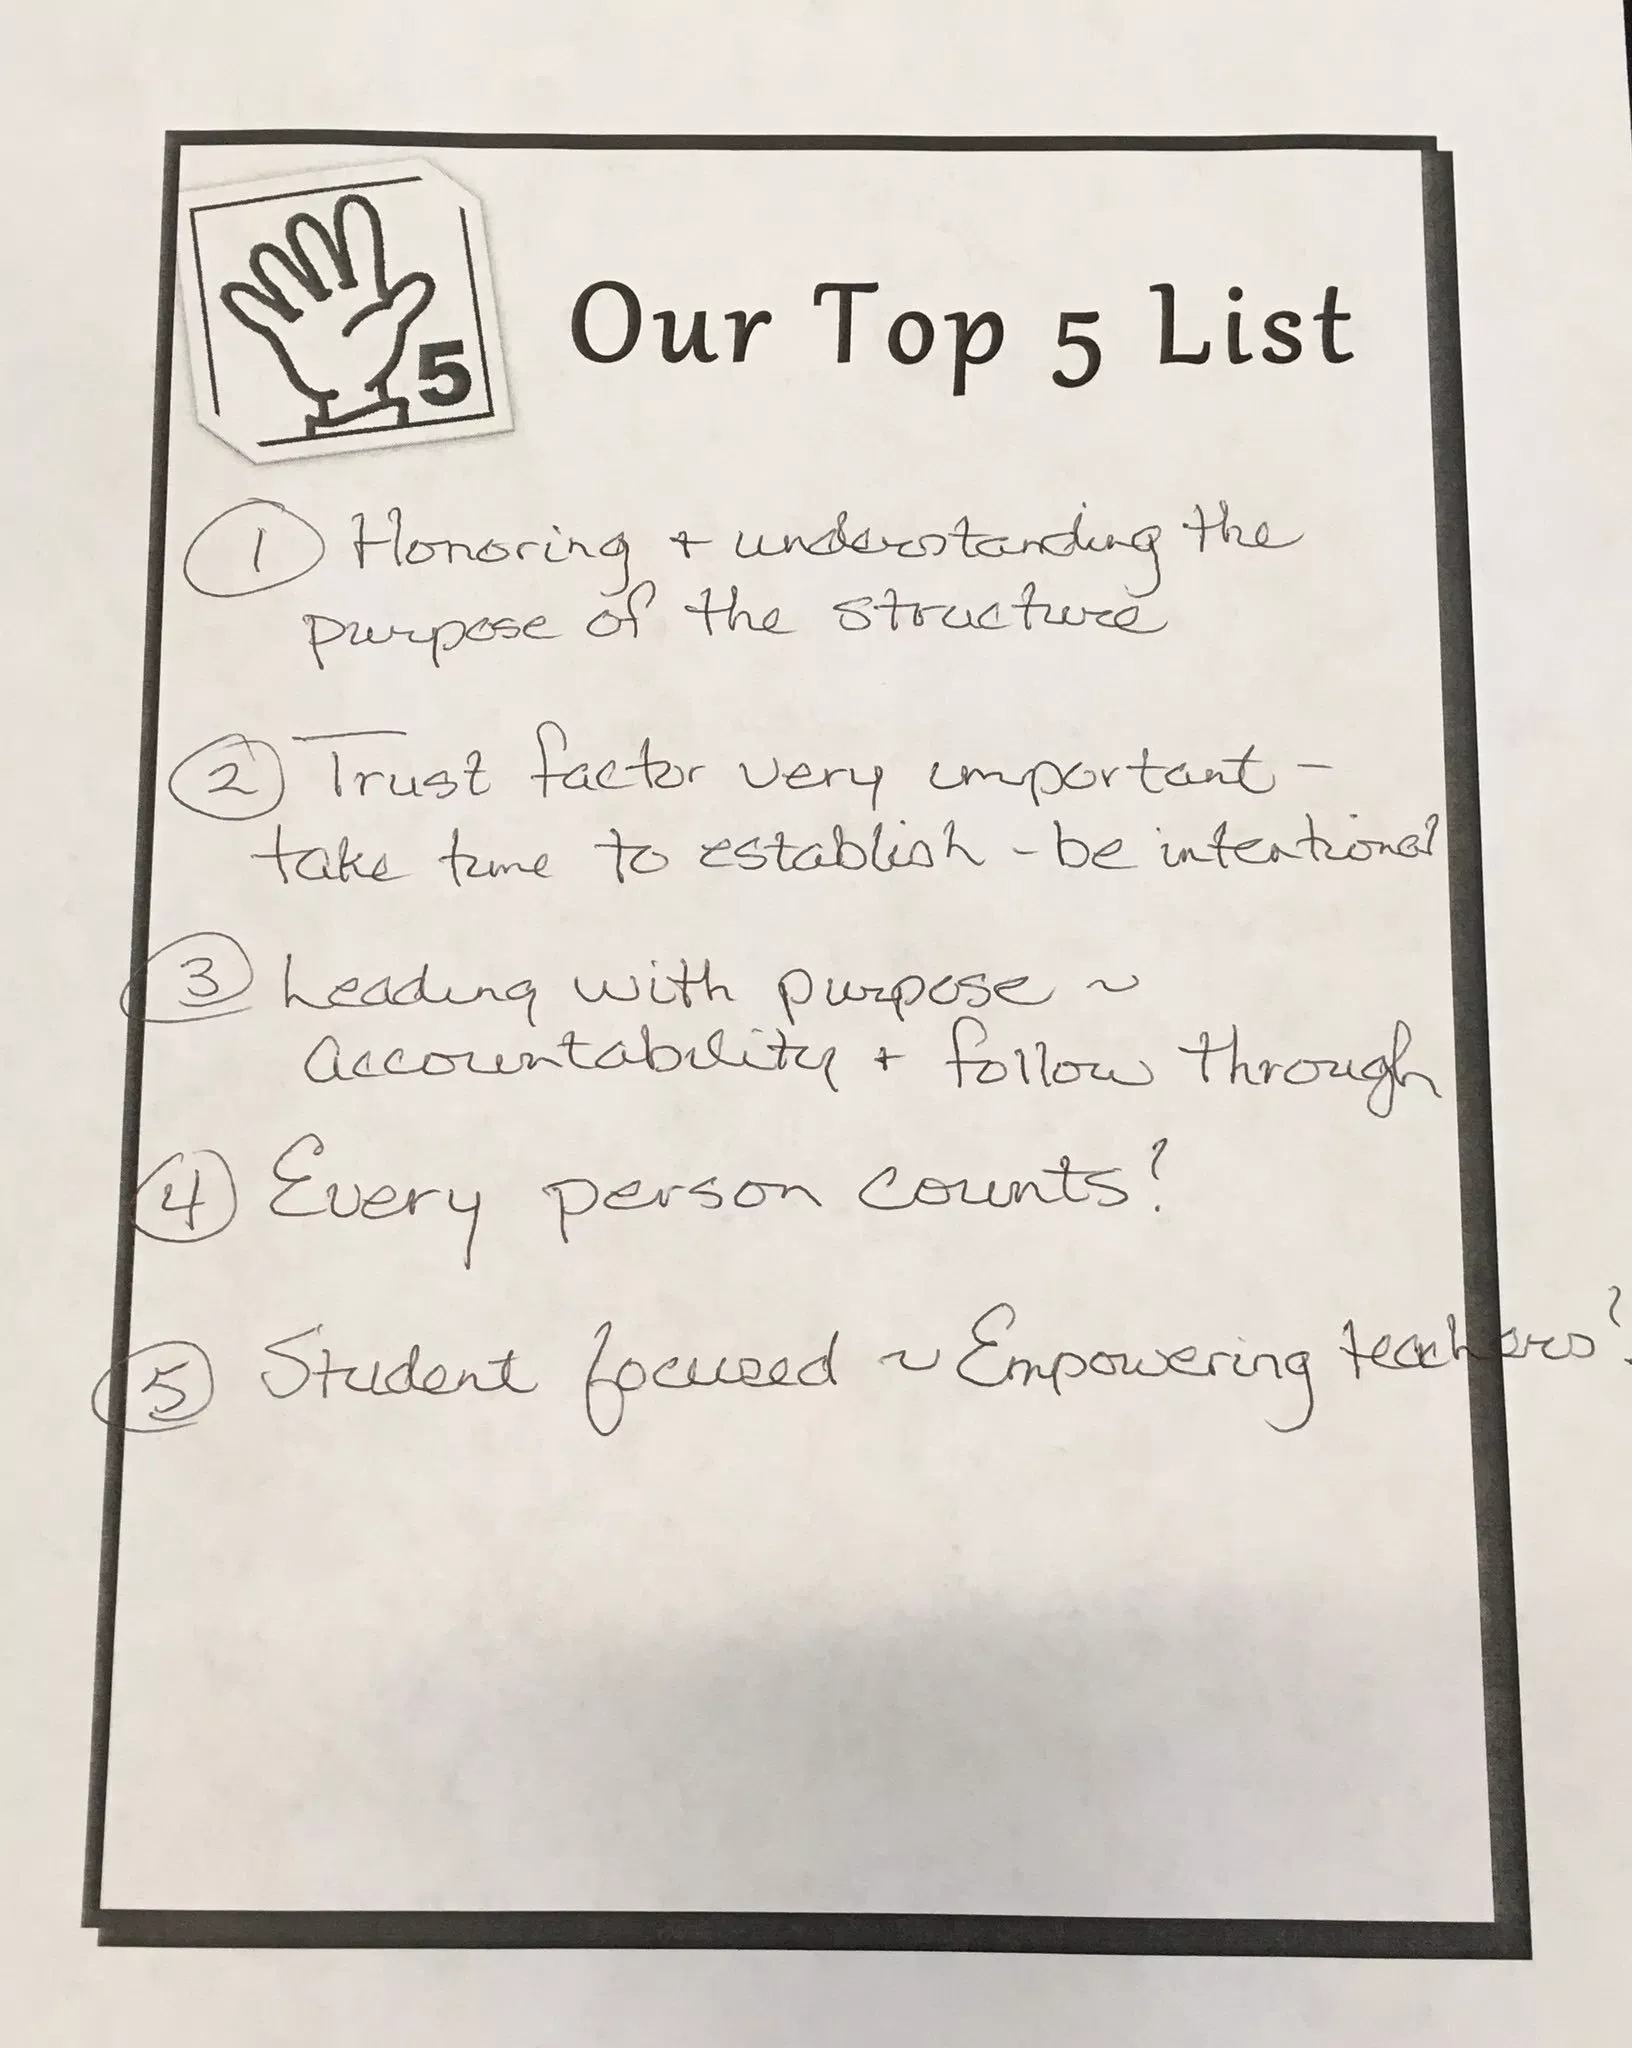 5
Our Top 5 List
① Honoring + understanding the
purpose of the structure
② Trust factor very important -
take time to establish - be intentional
③ Leading with purpose ~
Accountability + follow through
④ Every person counts!
⑤ Student focused ~ Empowering teachers!